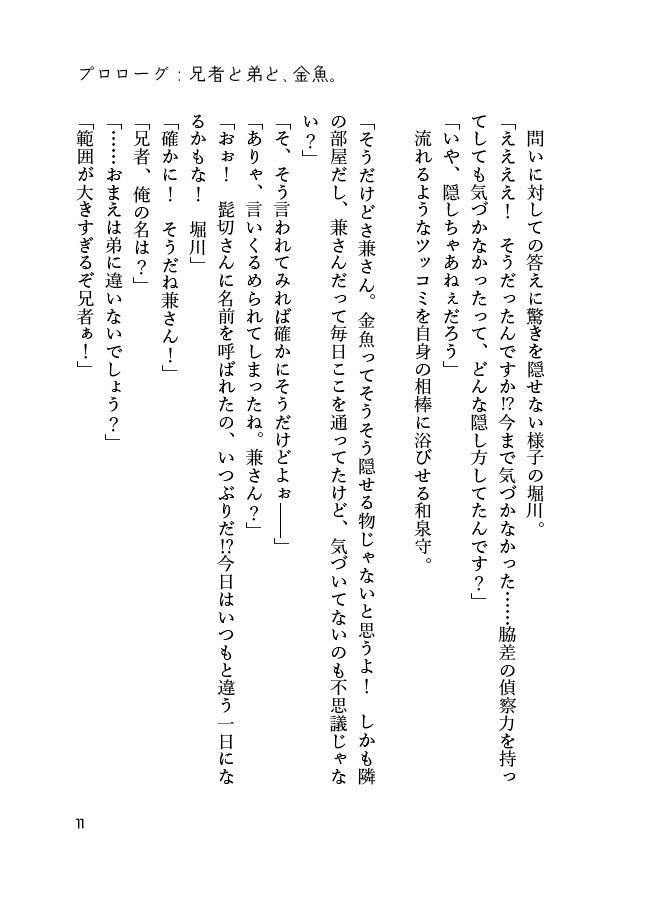 プロローグ：兄者と弟と、金魚。
　問いに対しての答えに驚きを隠せない様子の堀川。
「ええええ！　そうだったんですか!?今まで気づかなかった……脇差の偵察力を持っ
てしても気づかなかったって、どんな隠し方してたんです？」
「いや、隠しちゃあねぇだろう」
　流れるようなツッコミを自身の相棒に浴びせる和泉守。
「そうだけどさ兼さん。金魚ってそうそう隠せる物じゃないと思うよ！　しかも隣
の部屋だし、兼さんだって毎日ここを通ってたけど、気づいてないのも不思議じゃな
い？」
「そ、そう言われてみれば確かにそうだけどよぉ――」
「ありゃ、言いくるめられてしまったね。兼さん？」
「おぉ！　髭切さんに名前を呼ばれたの、いつぶりだ!?今日はいつもと違う一日にな
るかもな！　堀川」
「確かに！　そうだね兼さん！」
「兄者、俺の名は？」
「……おまえは弟に違いないでしょう？」
「範囲が大きすぎるぞ兄者ぁ！」
11